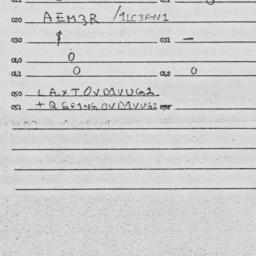 020 AEM3R /1LC3FN1
030 $ 031 —
040 0
041 0 042 0
050 LAXTOVMVUG2
051 +QG01NGOVMVUG2